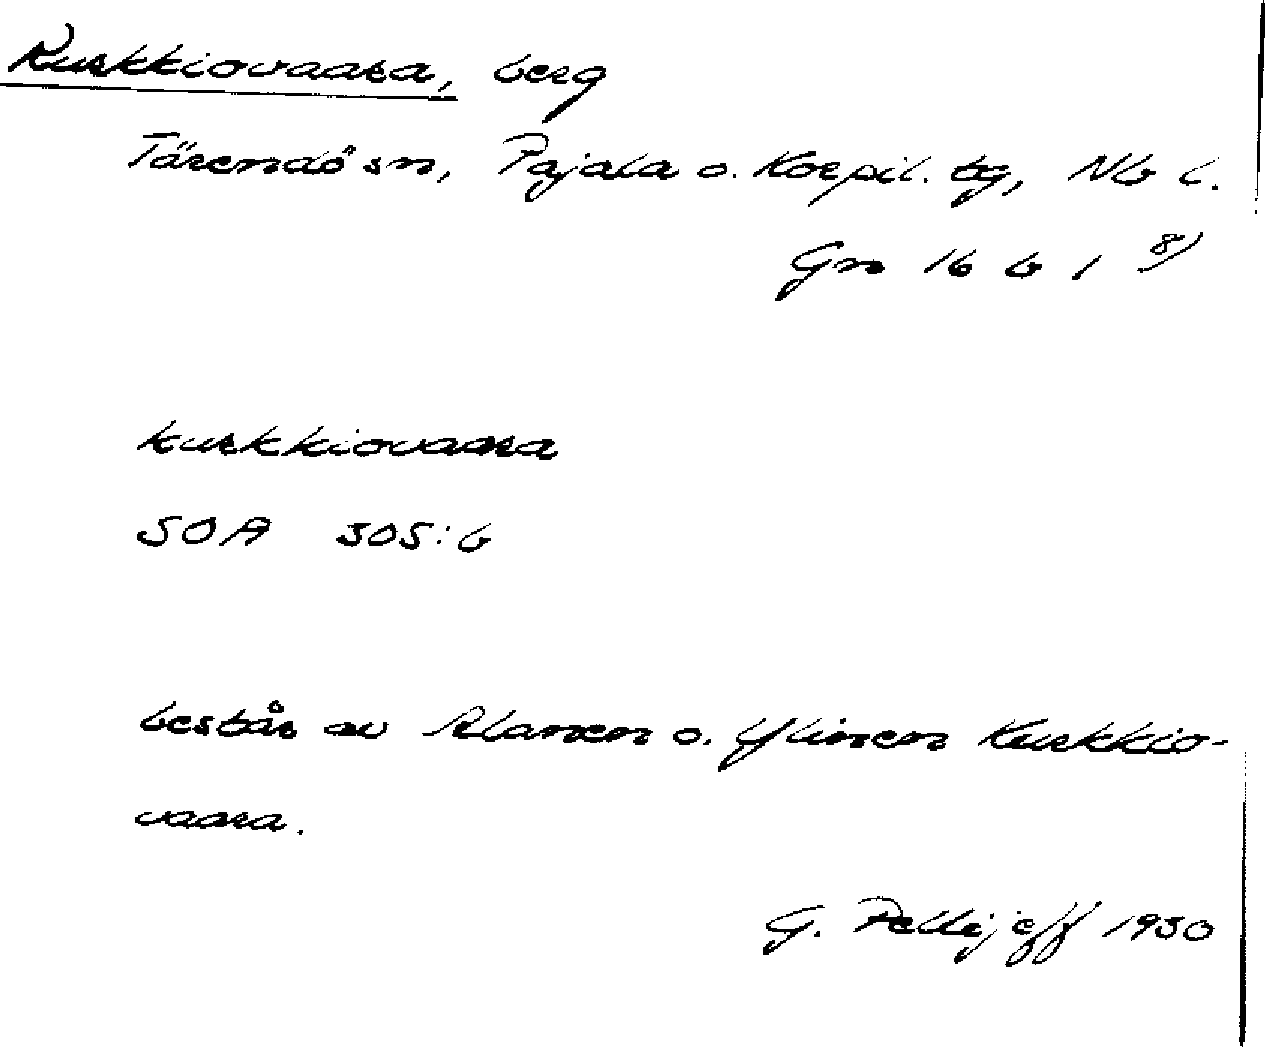 Kurkkiovaara, berg
Tärendö sn, Pajala o. Korpil. tg, Nb l.
Gn 16 b 1 8)
kurkkiovaara
SOA 305:6
består av Alanen o. Ylinen Kurkkio-
vaara.
G. Pellijeff 1950